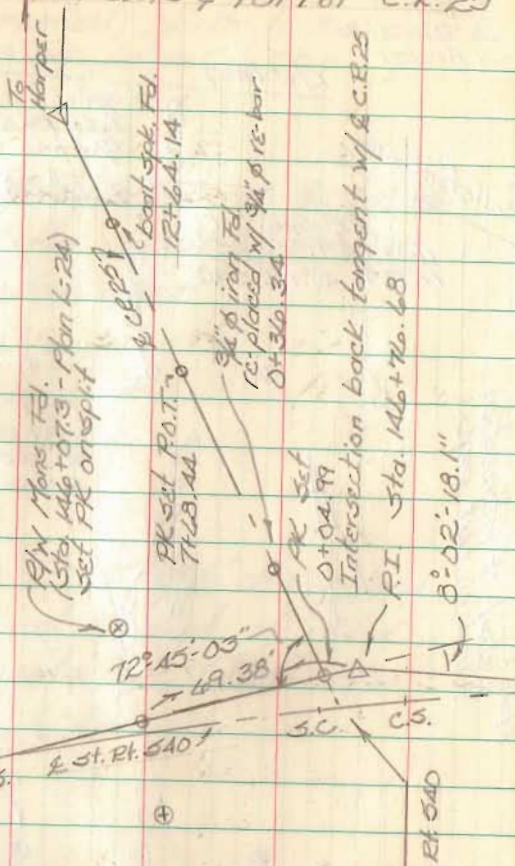 C.R. 25
To
Harper
R/W Mons Fd.
(Sta. 146+07.3 - Plan L-24)
Set PK on split
℄ CR 25
boat spk. Fd.
12+64.14
PK set P.O.T.
7+68.44
3/4" ø iron Fd.
re-placed w/ 3/4" ø re-bar
0+36.34
PK set
0+04.99
Intersection back tangent w/ ℄ C.R.25
P.I. Sta. 146+76.68
72°-45'-03"
49.38'
8°-02'-18.1"
℄ St. Rt. 540
S.C.
C.S.
Rt. 540